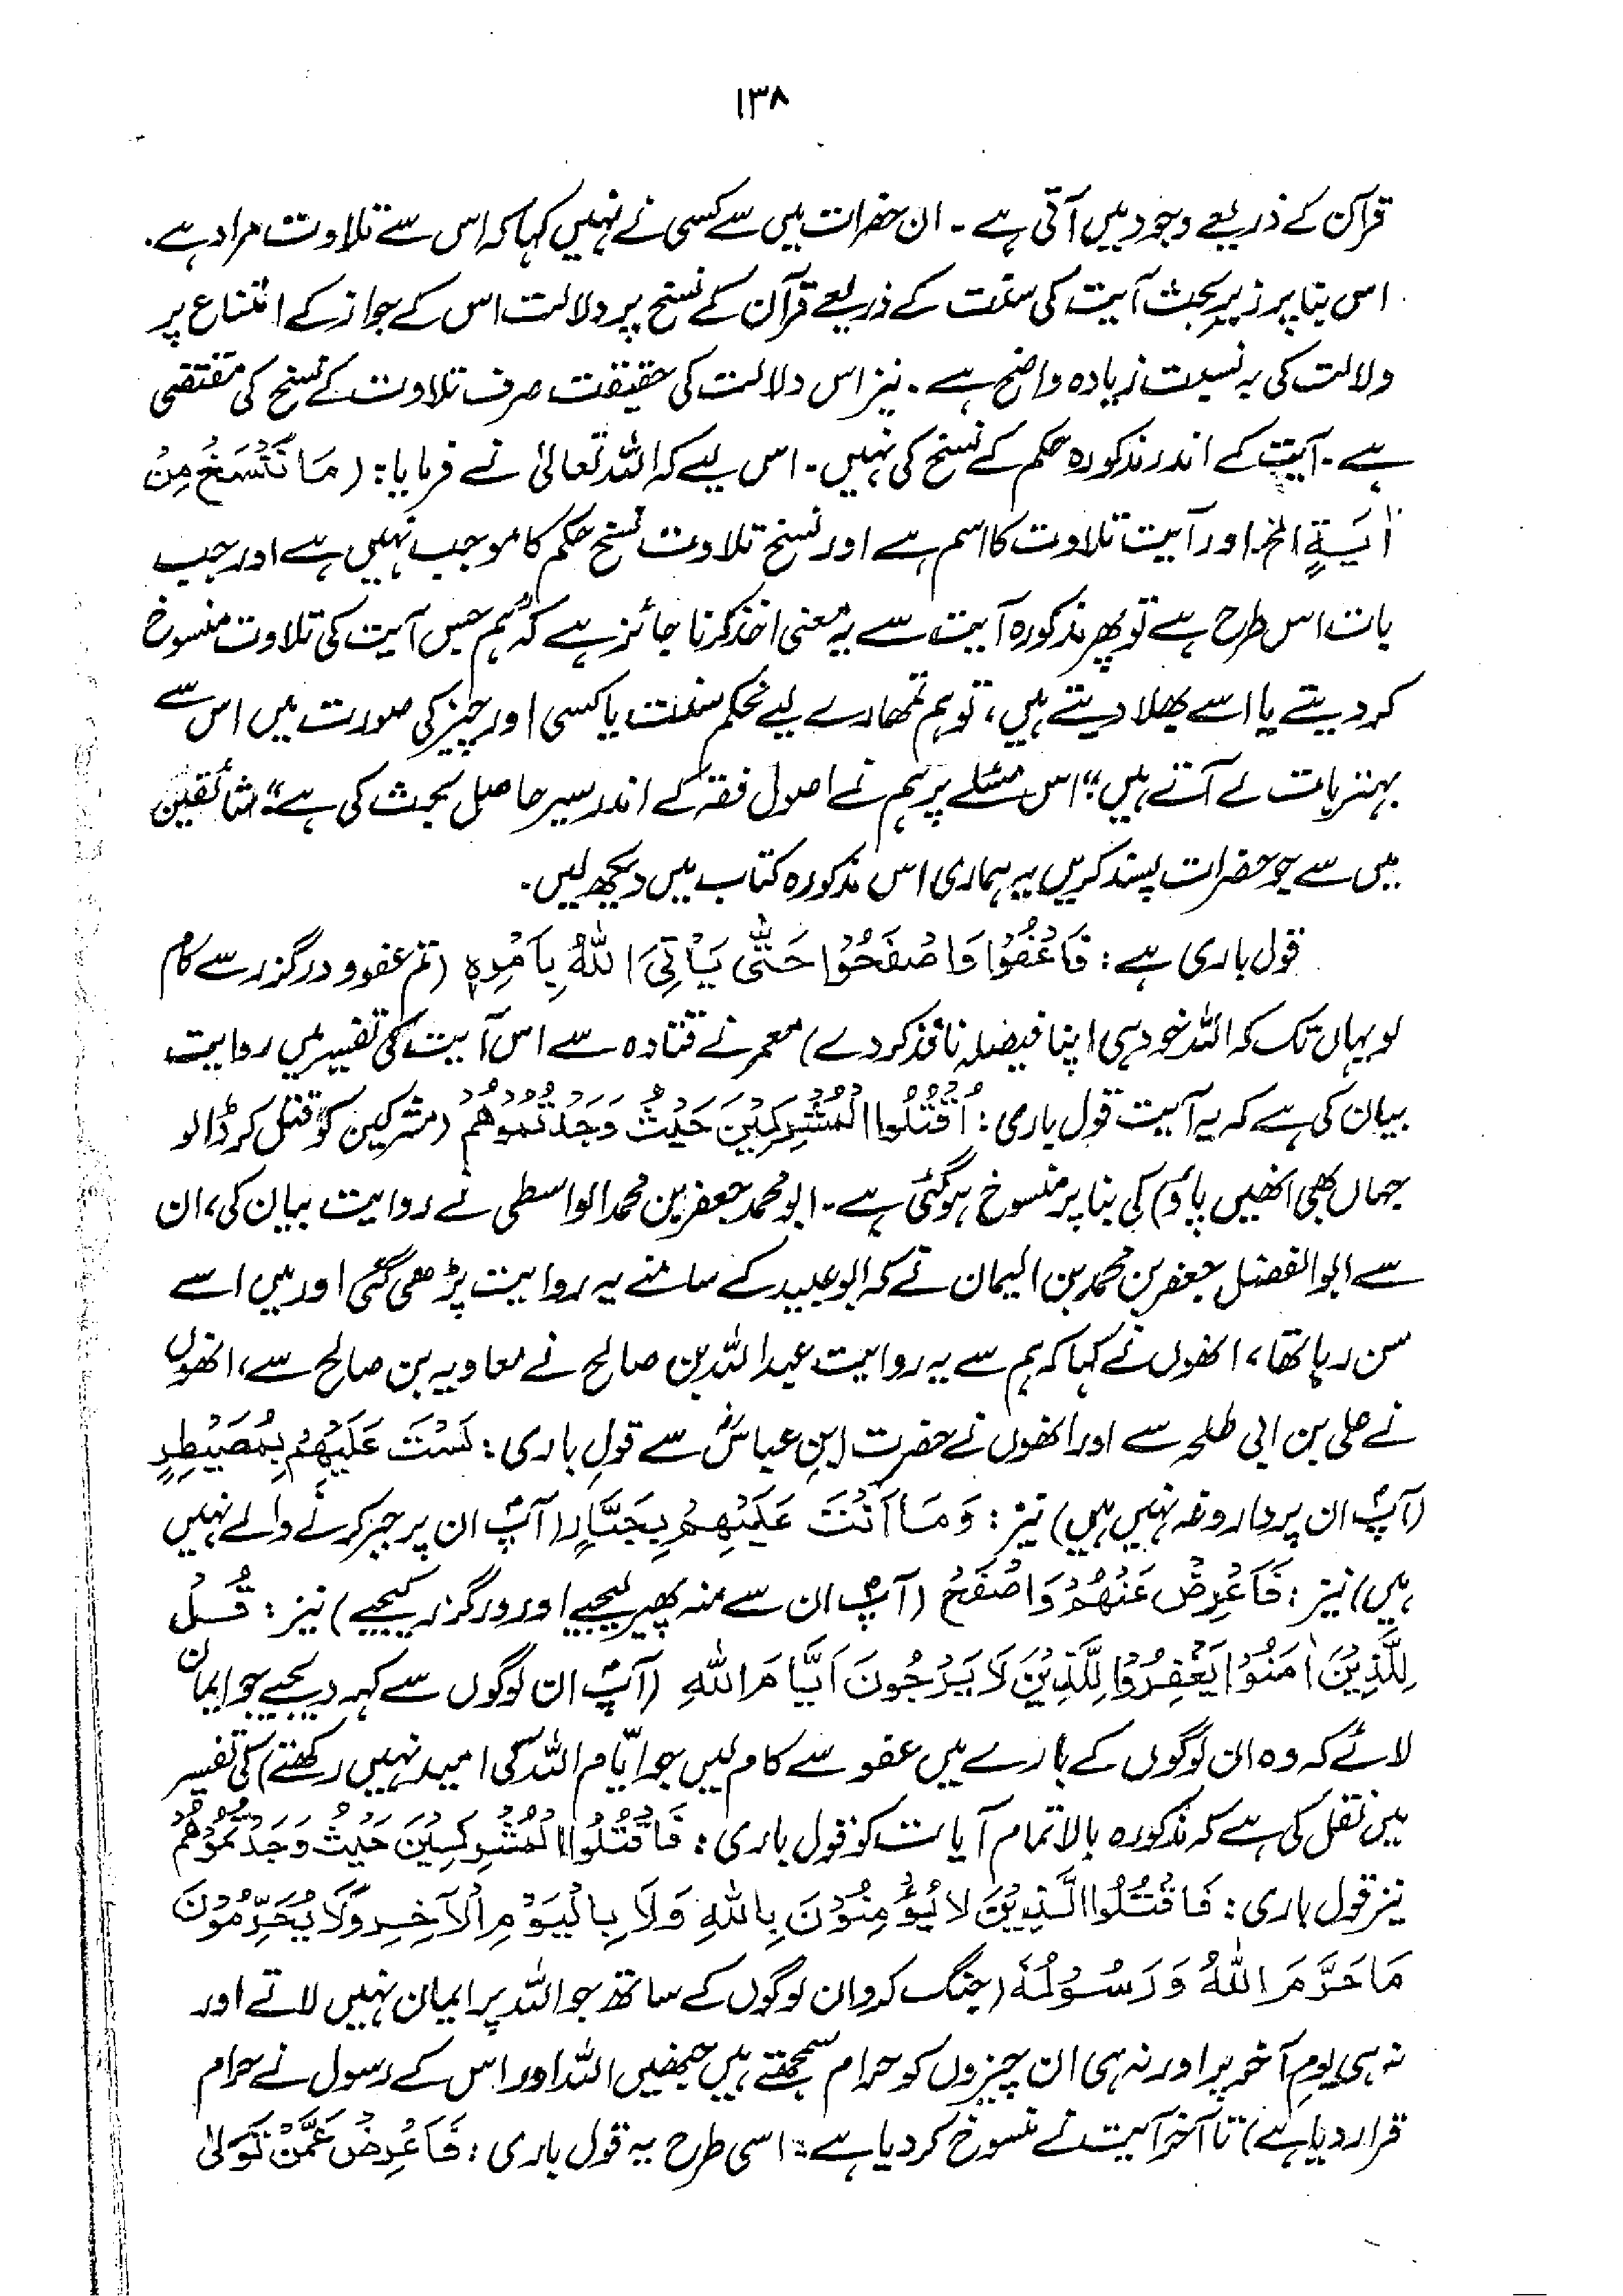 ۱۳۸
قرآن کے ذریعے وجود میں آتی ہے ۔ ان حضرات میں سے کسی نے نہیں کہا کہ اس سے تلاوت مراد ہے۔
اس بنا پر زیر بحث آیت کی سنت کے ذریعے قرآن کے نسخ پر دلالت اس کے جواز کے امتناع پر
دلالت کی بہ نسبت زیادہ واضح ہے ۔ نیز اس دلالت کی حقیقت صرف تلاوت کے نسخ کی مقتضی
ہے ۔ آیت کے اندر مذکورہ حکم کے نسخ کی نہیں ۔ اس لیے کہ اللہ تعالیٰ نے فرمایا: (مَا نَنْسَخْ مِنْ
اٰیَةٍ الخ اور آیت تلاوت کا اسم ہے اور نسخ تلاوت نسخ حکم کا موجب نہیں ہے اور جب
بات اس طرح ہے تو پھر مذکورہ آیت سے یہ معنی اخذ کرنا جائز ہے کہ ”ہم جس آیت کی تلاوت منسوخ
کر دیتے یا اسے بھلا دیتے ہیں، تو ہم تمھارے لیے محکم سنت یا کسی اور چیز کی صورت میں اس سے
بہتر بات لے آتے ہیں“ اس مسئلے پر ہم نے اصول فقہ کے اندر سیر حاصل بحث کی ہے“ شائقین
میں سے جو حضرات پسند کریں یہ ہماری اس مذکورہ کتاب میں دیکھ لیں۔
قول باری ہے: فَاعْفُوْا وَاصْفَحُوْا حَتّٰى یَاْتِیَ اللّٰهُ بِاَمْرِهٖ (تم عفو و درگزر سے کام
لو یہاں تک کہ اللہ خود ہی اپنا فیصلہ نافذ کر دے) معمر نے قتادہ سے اس آیت کی تفسیر میں روایت
بیان کی ہے کہ یہ آیت قول باری: اُقْتُلُوا الْمُشْرِكِیْنَ حَیْثُ وَجَدْتُمُوْهُمْ (مشرکین کو قتل کر ڈالو
جہاں بھی انھیں پاؤ) کی بنا پر منسوخ ہو گئی ہے ۔ ابو محمد جعفر بن محمد الواسطی نے روایت بیان کی، ان
سے ابو الفضل جعفر بن محمد بن الیمان نے کہ ابو عبید کے سامنے یہ روایت پڑھی گئی اور میں اسے
سن رہا تھا، انھوں نے کہا کہ ہم سے یہ روایت عبد اللہ بن صالح نے معاویہ بن صالح سے، انھوں
نے علی بن ابی طلحہ سے اور انھوں نے حضرت ابنِ عباسؓ سے قولِ باری: لَسْتَ عَلَیْهِمْ بِمُصَیْطِرٍ
(آپؐ ان پر داروغہ نہیں ہیں) نیز: وَمَا اَنْتَ عَلَیْهِمْ بِجَبَّارٍ (آپؐ ان پر جبر کرنے والے نہیں
ہیں) نیز: فَاَعْرِضْ عَنْهُمْ وَاصْفَحْ (آپؐ ان سے منہ پھیر لیجیے اور درگزر کیجیے) نیز: قُلْ
لِلَّذِیْنَ اٰمَنُوْا یَغْفِرُوْا لِلَّذِیْنَ لَا یَرْجُوْنَ اَیَّامَ اللّٰهِ (آپؐ ان لوگوں سے کہہ دیجیے جو ایمان
لائے کہ وہ ان لوگوں کے بارے میں عفو سے کام لیں جو ایّام اللہ کی امید نہیں رکھتے) کی تفسیر
میں نقل کی ہے کہ مذکورہ بالا تمام آیات کو قول باری: فَاقْتُلُوا الْمُشْرِكِیْنَ حَیْثُ وَجَدْتُّمُوْهُمْ
نیز قول باری: فَاقْتُلُوا الَّذِیْنَ لَا یُؤْمِنُوْنَ بِاللّٰهِ وَلَا بِالْیَوْمِ الْآخِرِ وَلَا یُحَرِّمُوْنَ
مَا حَرَّمَ اللّٰهُ وَرَسُوْلُهٗ (جنگ کرو ان لوگوں کے ساتھ جو اللہ پر ایمان نہیں لاتے اور
نہ ہی یومِ آخر پر اور نہ ہی ان چیزوں کو حرام سمجھتے ہیں جنھیں اللہ اور اس کے رسول نے حرام
قرار دیا ہے) تا آخر آیت نے منسوخ کر دیا ہے ۔ اسی طرح یہ قول باری: فَاَعْرِضْ عَمَّنْ تَوَلّٰى